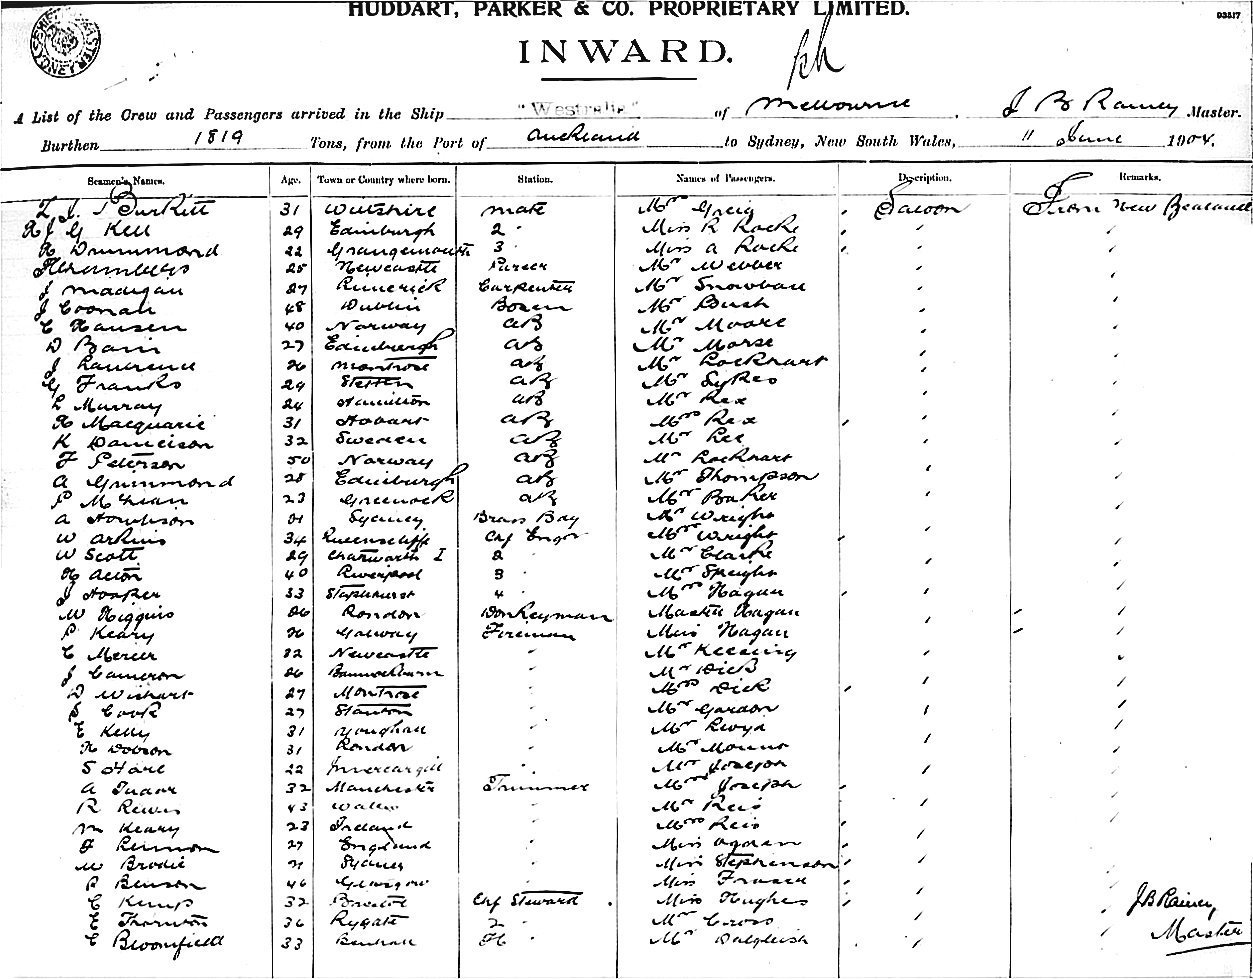 HUDDART, PARKER & CO. PROPRIETARY LIMITED.
93517
INWARD.
A List of the Crew and Passengers arrived in the Ship "Westralia" of Melbourne, J B Rainey Master.
Burthen 1819 Tons, from the Port of Auckland to Sydney, New South Wales, " June 1904.
Seamen's Names. Age. Town or Country where born. Station. Names of Passengers. Description. Remarks.
Burkitt 31 Wiltshire mate Mr Greig Saloon From New Zealand
Kell 29 Edinburgh 2 " Miss R Rocke
Drummond 22 Grangemouth 3 " Miss A Rocke
25 Newcastle Purser Mr Webber
J Madigan 27 Limerick Carpenter Mr Snowball
J Coonan 48 Dublin Bosun Mr Bush
C Hansen 40 Norway AB Mr Moore
D Bain 27 Edinburgh AB Mr Morse
J Laurence 26 Montrose AB Mr Lockhart
G Franks 29 Stettin AB Mr Sykes
L Murray 24 Hamilton AB Mr Rex
H Macquarie 31 Hobart AB Mrs Rex
K Danielson 32 Sweden AB Mr Lee
F Peterson 50 Norway AB Mr Lockhart
A Grummond 28 Edinburgh AB Mr Thompson
P McLean 23 Greenock AB Mr Baker
A 21 Sydney Brass Boy Mr Wright
W Arkins 34 Queenscliffe Chf Engr Mrs Wright
W Scott 29 Chatworth I 2 Mr Clarke
H Acton 40 Liverpool 3 " Mr Speight
J Hooper 33 Staplehurst 4 " Mrs Hagan
W Higgins 26 London Donkeyman Master Hagan
P Keary 26 Galway Fireman Miss Hagan
C Mercer 32 Newcastle " Mr Keesing
J Cameron 26 Bannockburn Mr Dick
D Wishart 27 Montrose " Mrs Dick
S Cook 27 Stanton " Mr Gordon
C Kelly 31 Youghal " Mr Lloyd
H Dobson 31 London " Mr
S Hare 22 Invercargill " Mr Joseph
A Tudor 32 Manchester Trimmer Mrs Joseph
R Lewis 43 Wales " Mr Reis
M Keary 23 Ireland " Mrs Reis
F Lennon 27 England " Miss Ogden
W Brodie 21 Sydney " Miss Stephenson
P Benson 46 Glasgow " Miss Fraser
C Kemp 32 Bristol Chf Steward Miss Hughes J B Rainey,
E Thornton 36 Rygate 2 " Mr Cross Master
C Bloomfield 33 Benhall " Mr Dalgleish